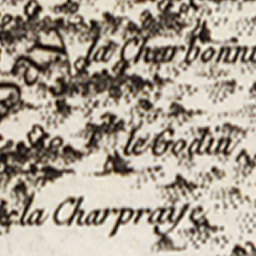 la Charbonni
le Godin
la Charpraye